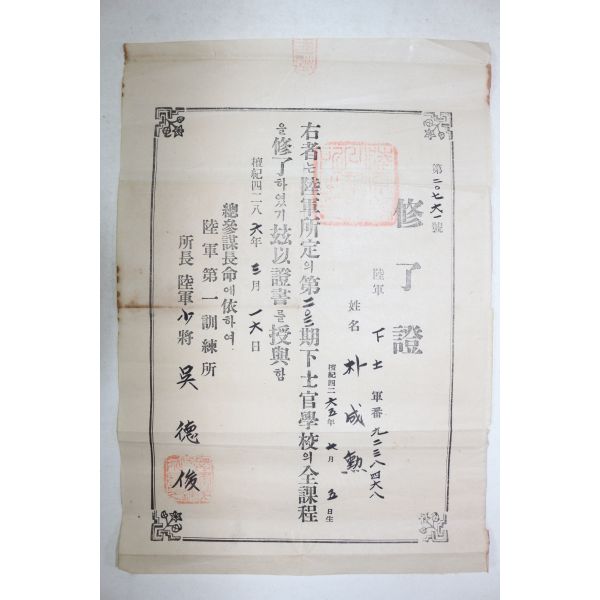 第二〇七六一號
修了證
陸軍 下士 軍番 九二三八四六八
姓名 朴成勳
檀紀四二六五年 七月 五日生
右者는陸軍所定의第二〇三期下士官學校의全課程
을修了하였기玆以證書를授與함
檀紀四二八六年三月一六日
總參謀長命에依하여
陸軍第一訓練所
所長 陸軍少將 吳德俊